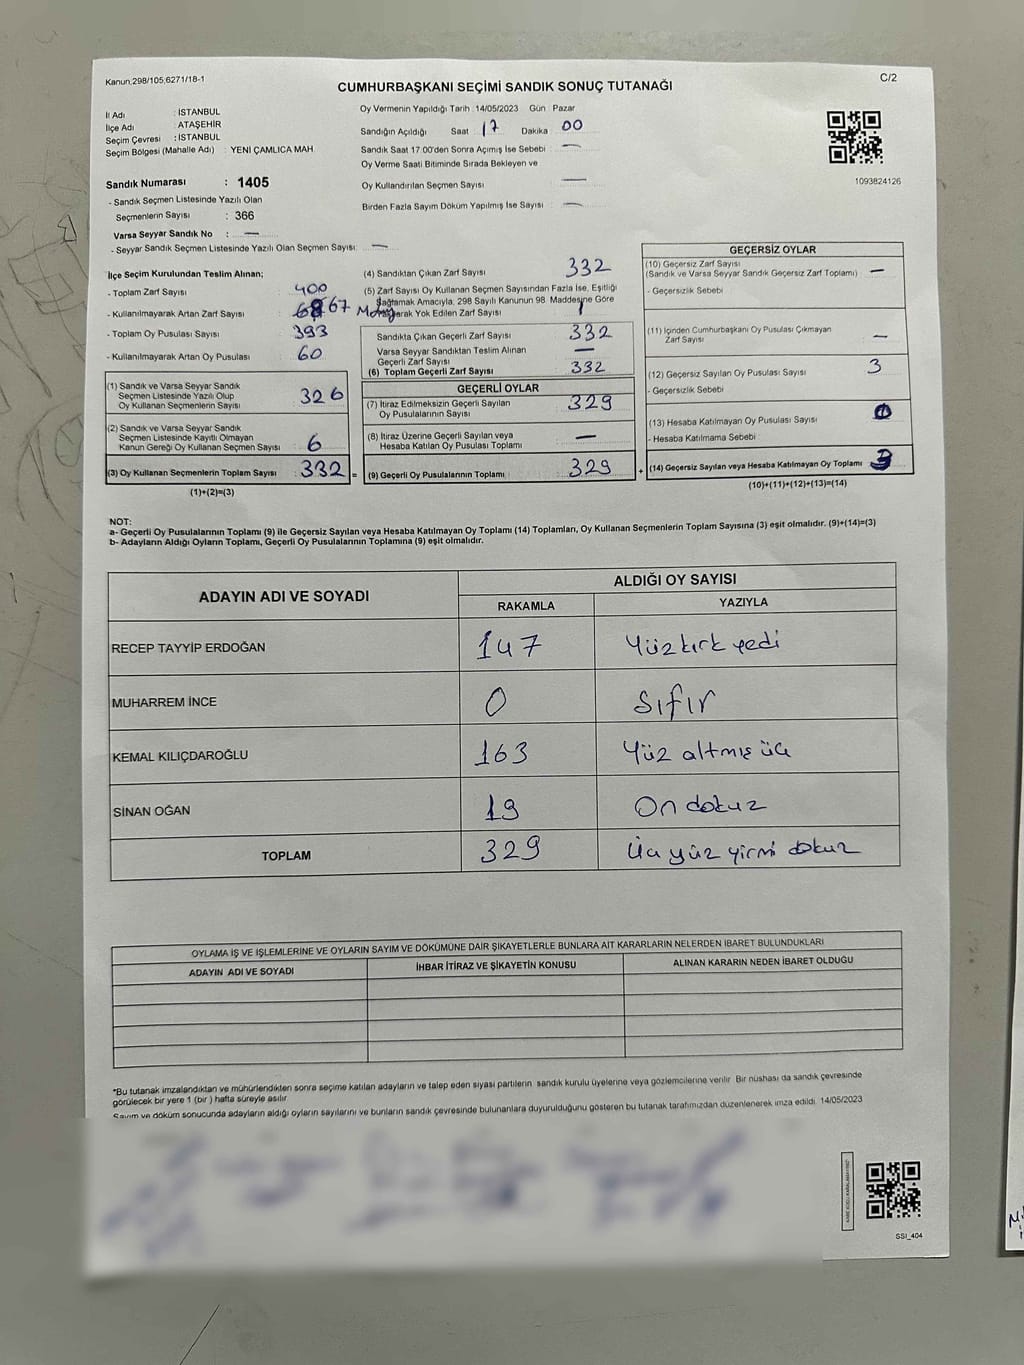 Kanun:298/105;6271/18-1
C/2
CUMHURBAŞKANI SEÇİMİ SANDIK SONUÇ TUTANAĞI
İl Adı : İSTANBUL
İlçe Adı : ATAŞEHİR
Seçim Çevresi : İSTANBUL
Seçim Bölgesi (Mahalle Adı) : YENİ ÇAMLICA MAH.
Sandık Numarası : 1405
- Sandık Seçmen Listesinde Yazılı Olan
Seçmenlerin Sayısı : 366
Varsa Seyyar Sandık No : —
- Seyyar Sandık Seçmen Listesinde Yazılı Olan Seçmen Sayısı: —
Oy Vermenin Yapıldığı Tarih : 14/05/2023 Gün Pazar
Sandığın Açıldığı Saat 17 Dakika 00
Sandık Saat 17.00'den Sonra Açımış İse Sebebi : —
Oy Verme Saati Bitiminde Sırada Bekleyen ve
Oy Kullandırılan Seçmen Sayısı —
Birden Fazla Sayım Döküm Yapılmış İse Sayısı —
1093824126
İlçe Seçim Kurulundan Teslim Alınan;
- Toplam Zarf Sayısı 400
- Kullanılmayarak Artan Zarf Sayısı 67
- Toplam Oy Pusulası Sayısı 393
- Kullanılmayarak Artan Oy Pusulası 60
(1) Sandık ve Varsa Seyyar Sandık
Seçmen Listesinde Yazılı Olup
Oy Kullanan Seçmenlerin Sayısı 326
(2) Sandık ve Varsa Seyyar Sandık
Seçmen Listesinde Kayıtlı Olmayan
Kanun Gereği Oy Kullanan Seçmen Sayısı 6
(3) Oy Kullanan Seçmenlerin Toplam Sayısı 332 =
(1)+(2)=(3)
(4) Sandıktan Çıkan Zarf Sayısı 332
(5) Zarf Sayısı Oy Kullanan Seçmen Sayısından Fazla İse, Eşitliği
Sağlamak Amacıyla, 298 Sayılı Kanunun 98. Maddesine Göre
Yok Edilen Zarf Sayısı 1
Sandıkta Çıkan Geçerli Zarf Sayısı 332
Varsa Seyyar Sandıktan Teslim Alınan
Geçerli Zarf Sayısı —
(6) Toplam Geçerli Zarf Sayısı 332
GEÇERLİ OYLAR
(7) İtiraz Edilmeksizin Geçerli Sayılan
Oy Pusulalarının Sayısı 329
(8) İtiraz Üzerine Geçerli Sayılan veya
Hesaba Katılan Oy Pusulası Toplamı —
(9) Geçerli Oy Pusulalarının Toplamı 329 +
GEÇERSİZ OYLAR
(10) Geçersiz Zarf Sayısı
(Sandık ve Varsa Seyyar Sandık Geçersiz Zarf Toplamı) —
- Geçersizlik Sebebi
(11) İçinden Cumhurbaşkanı Oy Pusulası Çıkmayan
Zarf Sayısı —
(12) Geçersiz Sayılan Oy Pusulası Sayısı 3
- Geçersizlik Sebebi
(13) Hesaba Katılmayan Oy Pusulası Sayısı
- Hesaba Katılmama Sebebi
(14) Geçersiz Sayılan veya Hesaba Katılmayan Oy Toplamı 3
(10)+(11)+(12)+(13)=(14)
NOT:
a- Geçerli Oy Pusulalarının Toplamı (9) ile Geçersiz Sayılan veya Hesaba Katılmayan Oy Toplamı (14) Toplamları, Oy Kullanan Seçmenlerin Toplam Sayısına (3) eşit olmalıdır. (9)+(14)=(3)
b- Adayların Aldığı Oyların Toplamı, Geçerli Oy Pusulalarının Toplamına (9) eşit olmalıdır.
ADAYIN ADI VE SOYADI
ALDIĞI OY SAYISI
RAKAMLA YAZIYLA
RECEP TAYYİP ERDOĞAN 147 Yüz kırk yedi
MUHARREM İNCE 0 Sıfır
KEMAL KILIÇDAROĞLU 163 Yüz altmış üç
SİNAN OĞAN 19 On dokuz
TOPLAM 329 Üç yüz yirmi dokuz
OYLAMA İŞ VE İŞLEMLERİNE VE OYLARIN SAYIM VE DÖKÜMÜNE DAİR ŞİKAYETLERLE BUNLARA AİT KARARLARIN NELERDEN İBARET BULUNDUKLARI
ADAYIN ADI VE SOYADI İHBAR İTİRAZ VE ŞİKAYETİN KONUSU ALINAN KARARIN NEDEN İBARET OLDUĞU
*Bu tutanak imzalandıktan ve mühürlendikten sonra seçime katılan adayların ve talep eden siyasi partilerin sandık kurulu üyelerine veya gözlemcilerine verilir. Bir nüshası da sandık çevresinde
görülecek bir yere 1 (bir ) hafta süreyle asılır.
Sayım ve döküm sonucunda adayların aldığı oyların sayılarını ve bunların sandık çevresinde bulunanlara duyurulduğunu gösteren bu tutanak tarafımızdan düzenlenerek imza edildi. 14/05/2023
SSI_404